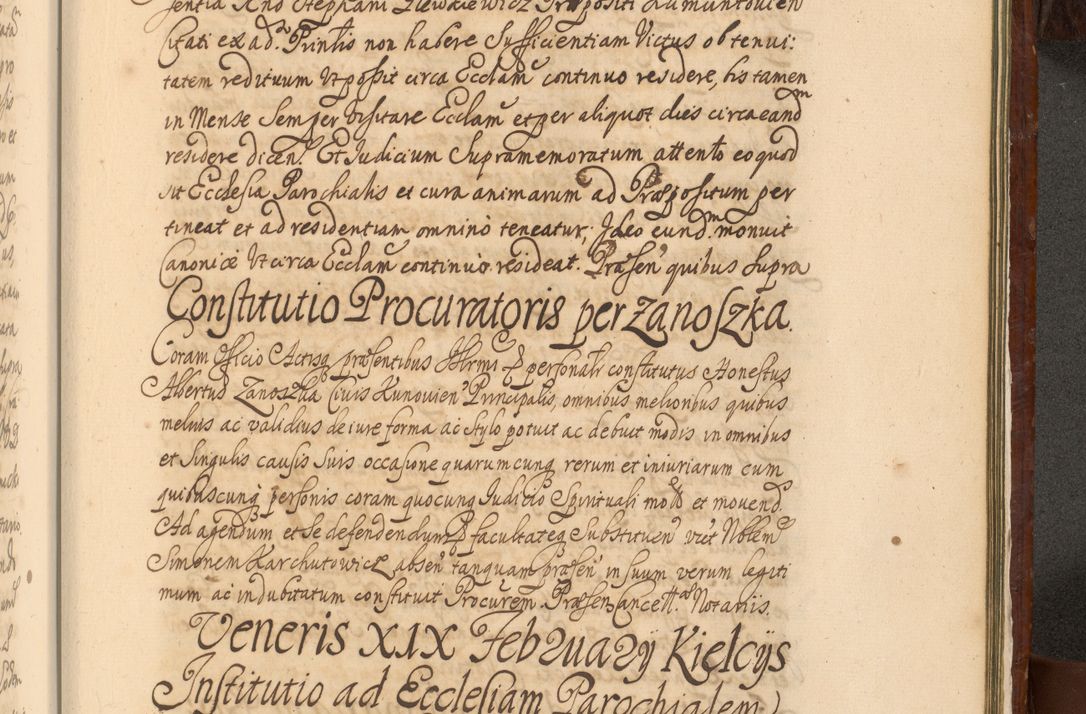 sentia Rndo Stephani Zlewkiewicz Præpositi Rumuntovien
Citati ex adᵒ. Prinlis non habere Sufficientiam Victus ob tenui:
tatem redituum Vt possit circa Ecclam continuo residere, his tamen
in Mense Semper Visitare Ecclam et per aliquot dies circa eandᵐ
residere dicen. Et Iudicium Supramemoratum attento eo quod
sit Ecclesia Parochialis et cura animarum ad Præpositum per
tineat et ad residentiam omnino teneatur; Ideo eundᵐ. monuit
Canonice Vt circa Ecclam continuo resideat. Præsen quibus Supra
Constitutio Procuratoris per Zanoszka.
Coram Officio Actisq præsentibus Illrmi personalr constitutus Honestus
Albertus Zanoszka Civis Kunovien Principalis, omnibus melioribus quibus
melius ac validius de iure forma ac stylo potuit ac debuit modis in omnibus
et Singulis causis Suis occasione quarumcunq rerum et iniuriarum cum
quibuscunq personis coram quocunq Iudicio Spirituali mots et movend.
Ad agendum et se defendendum facultateq Substituen vict Noblem
Simonem Karchutowicz absen tanquam præsen in suum verum legiti
mum ac indubitatum constituit Procurem. Præsen Cancell. Notariis.
Veneris XIX February Kielcijs
Institutio ad Ecclesiam Parochialem